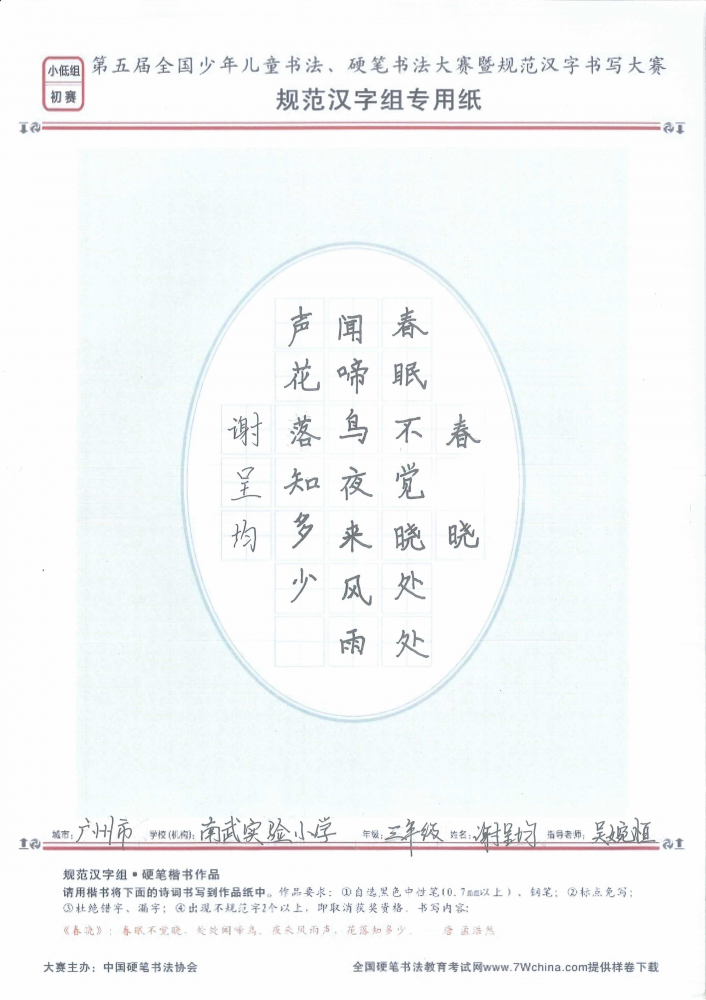 小低组
初赛
第五届全国少年儿童书法、硬笔书法大赛暨规范汉字书写大赛
规范汉字组专用纸
春晓
春眠不觉晓处处
闻啼鸟夜来风雨
声花落知多少
谢呈均
城市：广州市 学校(机构)：南武实验小学 年级：三年级 姓名：谢呈均 指导老师：吴婉恒
规范汉字组·硬笔楷书作品
请用楷书将下面的诗词书写到作品纸中。作品要求：①自选黑色中性笔(0.7mm以上)、钢笔；②标点免写；
③杜绝错字、漏字；④出现不规范字2个以上，即取消获奖资格。书写内容：
《春晓》：春眠不觉晓，处处闻啼鸟。夜来风雨声，花落知多少。——唐 孟浩然
大赛主办：中国硬笔书法协会
全国硬笔书法教育考试网www.7Wchina.com提供样卷下载